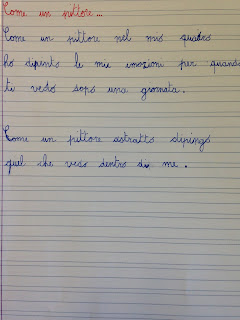 Come un pittore...
Come un pittore nel mio quadro
ho dipinto le mie emozioni per quando
ti vedo dopo una giornata.
Come un pittore astratto dipingo
quel che vedo dentro di me.